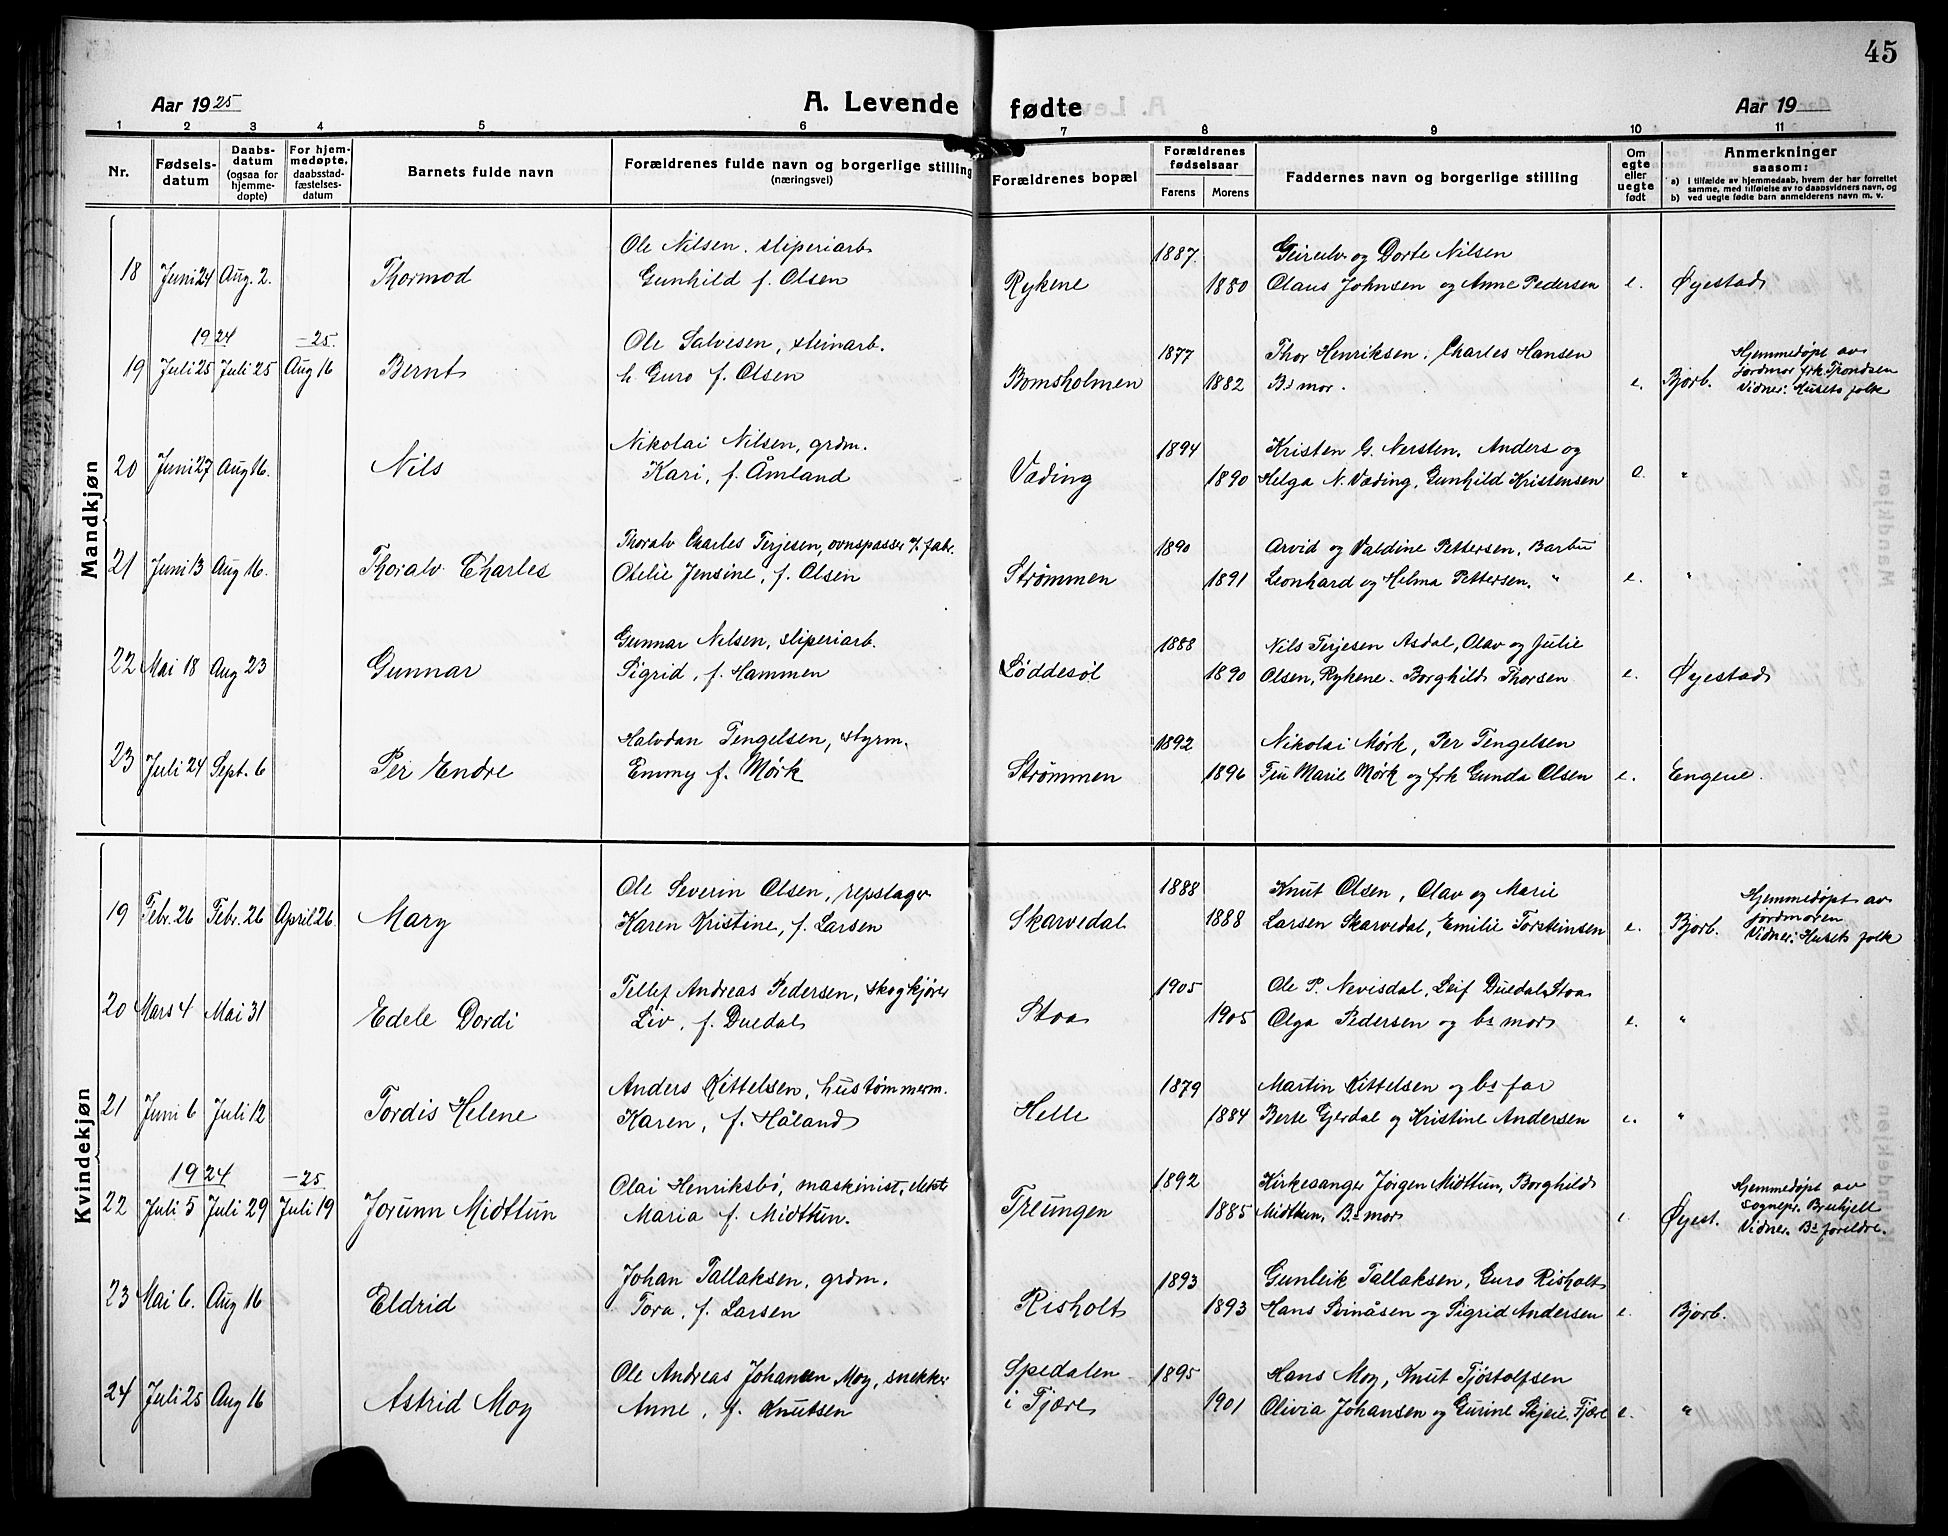 45
Aar 1925 A. Levende fødte Aar 19
1 2 3 4 5 6 7 8 9 10 11
Nr. Fødsels-datum Daabs-datum (ogsaa for hjemme-døpte) For hjem-medøpte, daabsstad-fæstelses-datum Barnets fulde navn Forældrenes fulde navn og borgerlige stilling (næringsvei) Forældrenes bopæl Forældrenes fødselsaar Farens Morens Faddernes navn og borgerlige stilling Om egte eller uegte født Anmerkninger saasom:
a) I tilfælde av hjemmedaab, hvem der har forrettet samme, med tilføielse av to daabsvidners navn, og
b) ved uegte fødte barn anmelderens navn m. v.
Mandkjøn
Ole Nilsen, sliperiarb 1887. Geirulv og Dorte Nilsen
18 Juni 24 Aug. 2. Thormod Gunhild f. Olsen Rykene 1880 Olaus Johnsen og Anne Pedersen e. Øyestad
1924 -25 Ole Salvesen, steinarb. 1877 Thor Henriksen, Charles Hansen Hjemmedøpt av
19 Juli 25 Juli 25 Aug 16 Bernt h. Guro f. Olsen Bomsholmen 1882 Bs mor. e. Bjorb. Jordmor frk. Trondsen
Vidner: Husets folk
Nikolai Nilsen, grdm. 1894 Kristen G. Nersten, Anders og
20 Juni 27 Aug 16. Nils Kari, f. Åmland Væding 1890 Helga N. Væding, Gunhild Kristensen e. "
Thoralv Charles Terjesen, ovnspasser v/ fabr. 1890 Arvid og Valdine Pettersen, Barbu
21 Juni 13 Aug 16. Thoralv Charles Otelie Jensine, f. Olsen Strømmen 1891 Leonhard og Helma Pettersen, " e. "
Gunnar Nilsen, sliperiarb. 1888 Nils Terjesen Asdal, Olav og Julie
22 Mai 18 Aug 23 Gunnar Sigrid, f. Hammen Løddesøl 1890 Olsen, Rykene. Borghild Thorsen e. Øyestad
Halvdan Tengelsen, styrm. 1892 Nikolai Mørk, Per Tengelsen
23 Juli 24 Sept. 6 Per Endre Emmy f. Mørk Strømmen 1896 Fru Marie Mørk og frk Gunda Olsen e. Engene.
Kvindekjøn
Ole Severin Olsen, repslager 1888 Knut Olsen, Olav og Marie Hjemmedøpt av
19 Febr. 26 Febr. 26 April 26 Mary Karen Kristine, f. Larsen Skarvedal 1888 Larsen Skarvedal, Emilie Torsteinsen e. Bjorb. Jordmoren
Vidner: Husets folk
Tellef Andreas Pedersen, skogkjører 1905 Ole P. Nevisdal, Leif Duedal, Stoa
20 Mars 4 Mai 31 Edele Dordi Liv, f. Duedal Stoa 1905 Olga Pedersen og bs mor e. "
Anders Kittelsen, hustømmerm. 1879 Martin Kittelsen og bs far
21 Juni 6 Juli 12 Tordis Helene Karen, f. Håland Helle 1884 Berte Gjerdal og Kristine Andersen e. "
1924 -25 Olai Henriksbø, maskinist, 1892 Kirkesanger Jørgen Midttun, Borghild Hjemmedøpt av
22 Juli 5 Juli 29 Juli 19 Jorunn Midttun Maria f. Midttun. Treungen 1885 Midttun, Bs mor e. Øyest. sognepr.
Vidner. Bs foreldre.
Johan Tallaksen, grdm. 1893 Gunleik Tallaksen, Guro Risholt
23 Mai 6. Aug 16 Eldrid Tora, f. Larsen Risholt 1893 Hans Svinåsen og Sigrid Andersen e. Bjorb.
Ole Andreas Johansen Moy, snekker Spedalen 1895 Hans Moy, Knut Tjøstolfsen
24 Juli 25 Aug 16 Astrid Moy Anne, f. Knutsen i Fjære 1901 Olivia Johansen og Gurine Skjeie, Fjære e. "